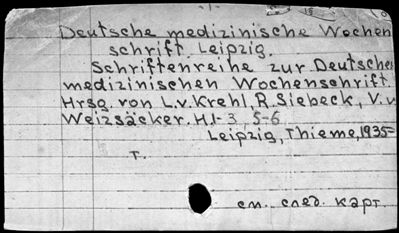 Deutsche medizinische Wochen
schrift. Leipzig.
Schriftenreihe zur Deutschen
medizinischen Wochenschrift.
Hrsg. von L.v. Krehl, R. Siebeck, V. v.
Weizsäcker. H.1-3, 5-6
Leipzig, Thieme, 1935-
T.
см. след. карт.